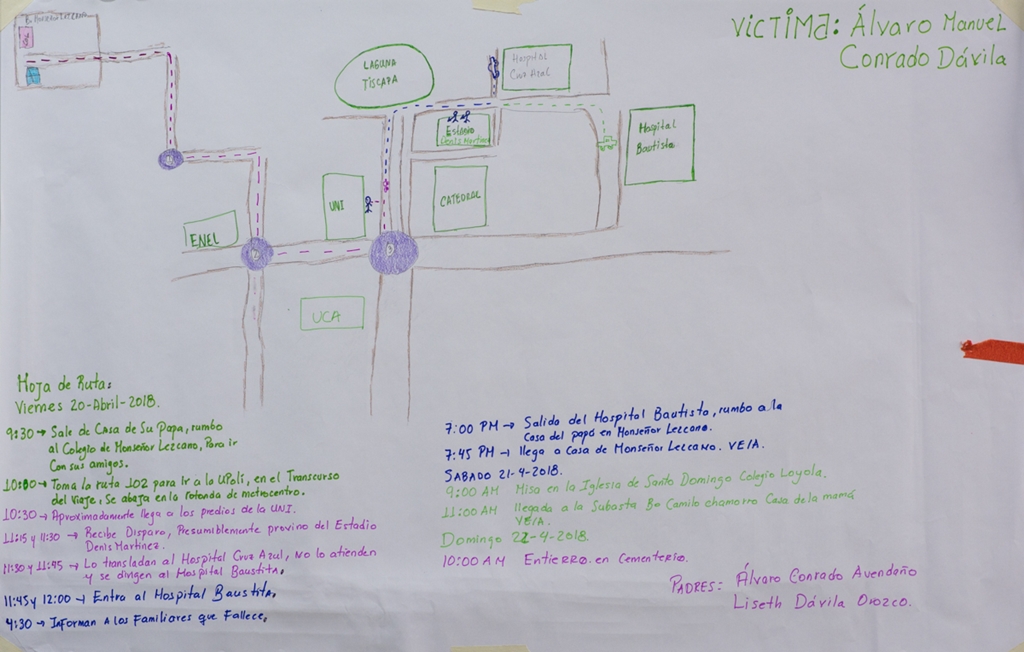 VÍCTIMA: Álvaro Manuel
Conrado Dávila
LAGUNA
TISCAPA
Hospital
Cruz Azul
Estadio
Denis Martinez
Hospital
Bautista
UNI
CATEDRAL
ENEL
UCA
Hoja de Ruta:
Viernes 20-Abril-2018.
9:30 → Sale de Casa de Su Papa, rumbo
al Colegio de Monseñor Lezcano, Para ir
Con sus amigos.
10:00 → Toma la ruta 102 para Ir a la UPoli, en el Transcurso
del Viaje, Se abaja en la rotonda de metrocentro.
10:30 → Aproximadamente llega a los predios de la UNI.
11:15 y 11:30 → Recibe Disparo, Presumiblemente provino del Estadio
Denis Martínez.
11:30 y 11:45 → Lo transladan al Hospital Cruz Azul, No lo atienden
y se dirigen al Hospital Baustita.
11:45 y 12:00 → Entra al Hospital Baustita.
4:30 → Informan A los Familiares que Fallece.
7:00 PM → Salida del Hospital Bautista, rumbo a la
Casa del papá en Monseñor Lezcano.
7:45 PM → llega a Casa de Monseñor Lezcano. VEIA.
SABADO 21-4-2018.
9:00 AM Misa en la Iglesia de Santo Domingo Colegio Loyola.
11:00 AM llegada a la Subasta Bo Camilo chamorro Casa de la mamá
VEIA.
Domingo 22-4-2018
10:00 AM Entierro en Cementerio.
PADRES: Álvaro Conrado Avendaño
Liseth Dávila Orozco.